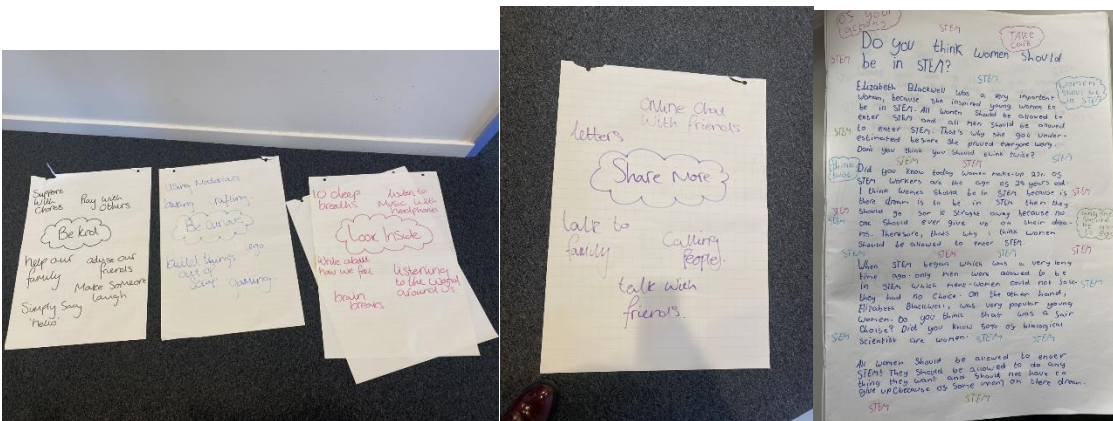 Support
With
Chores
Play with
Others
Be Kind
help our
family
our
friends
Make Someone
laugh
Simply Say
"Hello"
Using Materials
baking
crafting
Be Curious
lego
build things
out of
scrap
gaming
10 deep
breaths
listen to
Music With
headphones
Look Inside
Write about
how we feel
listening
to the World
around us
brain
breaks
Online Chat
With friends
letters
Share More
talk to
family
Calling
People.
talk With
friends.
of your
STEM
TAKE
Do you think women should
be in STEM?
STEM
STEM
Elizabeth Blackwell was a very important
woman, because she inspired young women to
be in STEM. All women should be allowed to
enter STEM and all men should be allowed
to enter STEM. That's why she got under-
estimated before she proved everyone wrong.
Don't you think you should think twice?
STEM
STEM
STEM
STEM
think
twice
Did you know today women make-up 27% of
STEM workers are the age of 25 years old.
I think women should be in STEM because is
there dream is to be in STEM then they
should go for it straight away because no
one should ever give up on their drea-
ms. Therefore, thats why I think women
should be allowed to enter STEM.
STEM
STEM
STEM
STEM
STEM
STEM
When STEM began which was a very long
time ago. only men were allowed to be
in STEM which meant women could not join
they had no choice. On the other hand,
Elizabeth Blackwell, was very popular young
women. Do you think that was a fair
Choise? Did you know 50% of biological
scientist are women.
STEM
STEM
STEM
All women should be allowed to enter
STEM! They should be allowed to do any
thing they want and should not have to
give up because of some men on there dream.
STEM
STEM